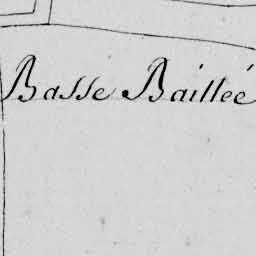 Basse Baillée